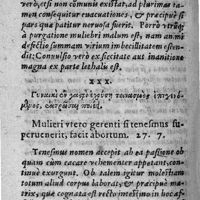 vero, est non communis existat, ad plurimas ta-
men consequitur euacuationes, & præcipuè si
pars quæ patitur neruosa fuerit. Porrò vtrunq́
à purgatione mulieri malum est, nam animæ
defectio summam virium imbecillitatem osten-
dit: Conuulsio verò ex siccitate aut inanitione
magna ex parte lethalis est.
XXX.
Mulieri vtero gerenti si tenesmus su-
peruenerit, facit abortum. 27. 7.
Tenesmus nomen accepit ab ea passione ob
quam cum cacare vehementer appetant, conti-
nuè exurgunt. Ob talem igitur molestiam
totum alui corpus laborat, & præcipuè ma-
trix, quæ cognata est recto intestino in hoc af-